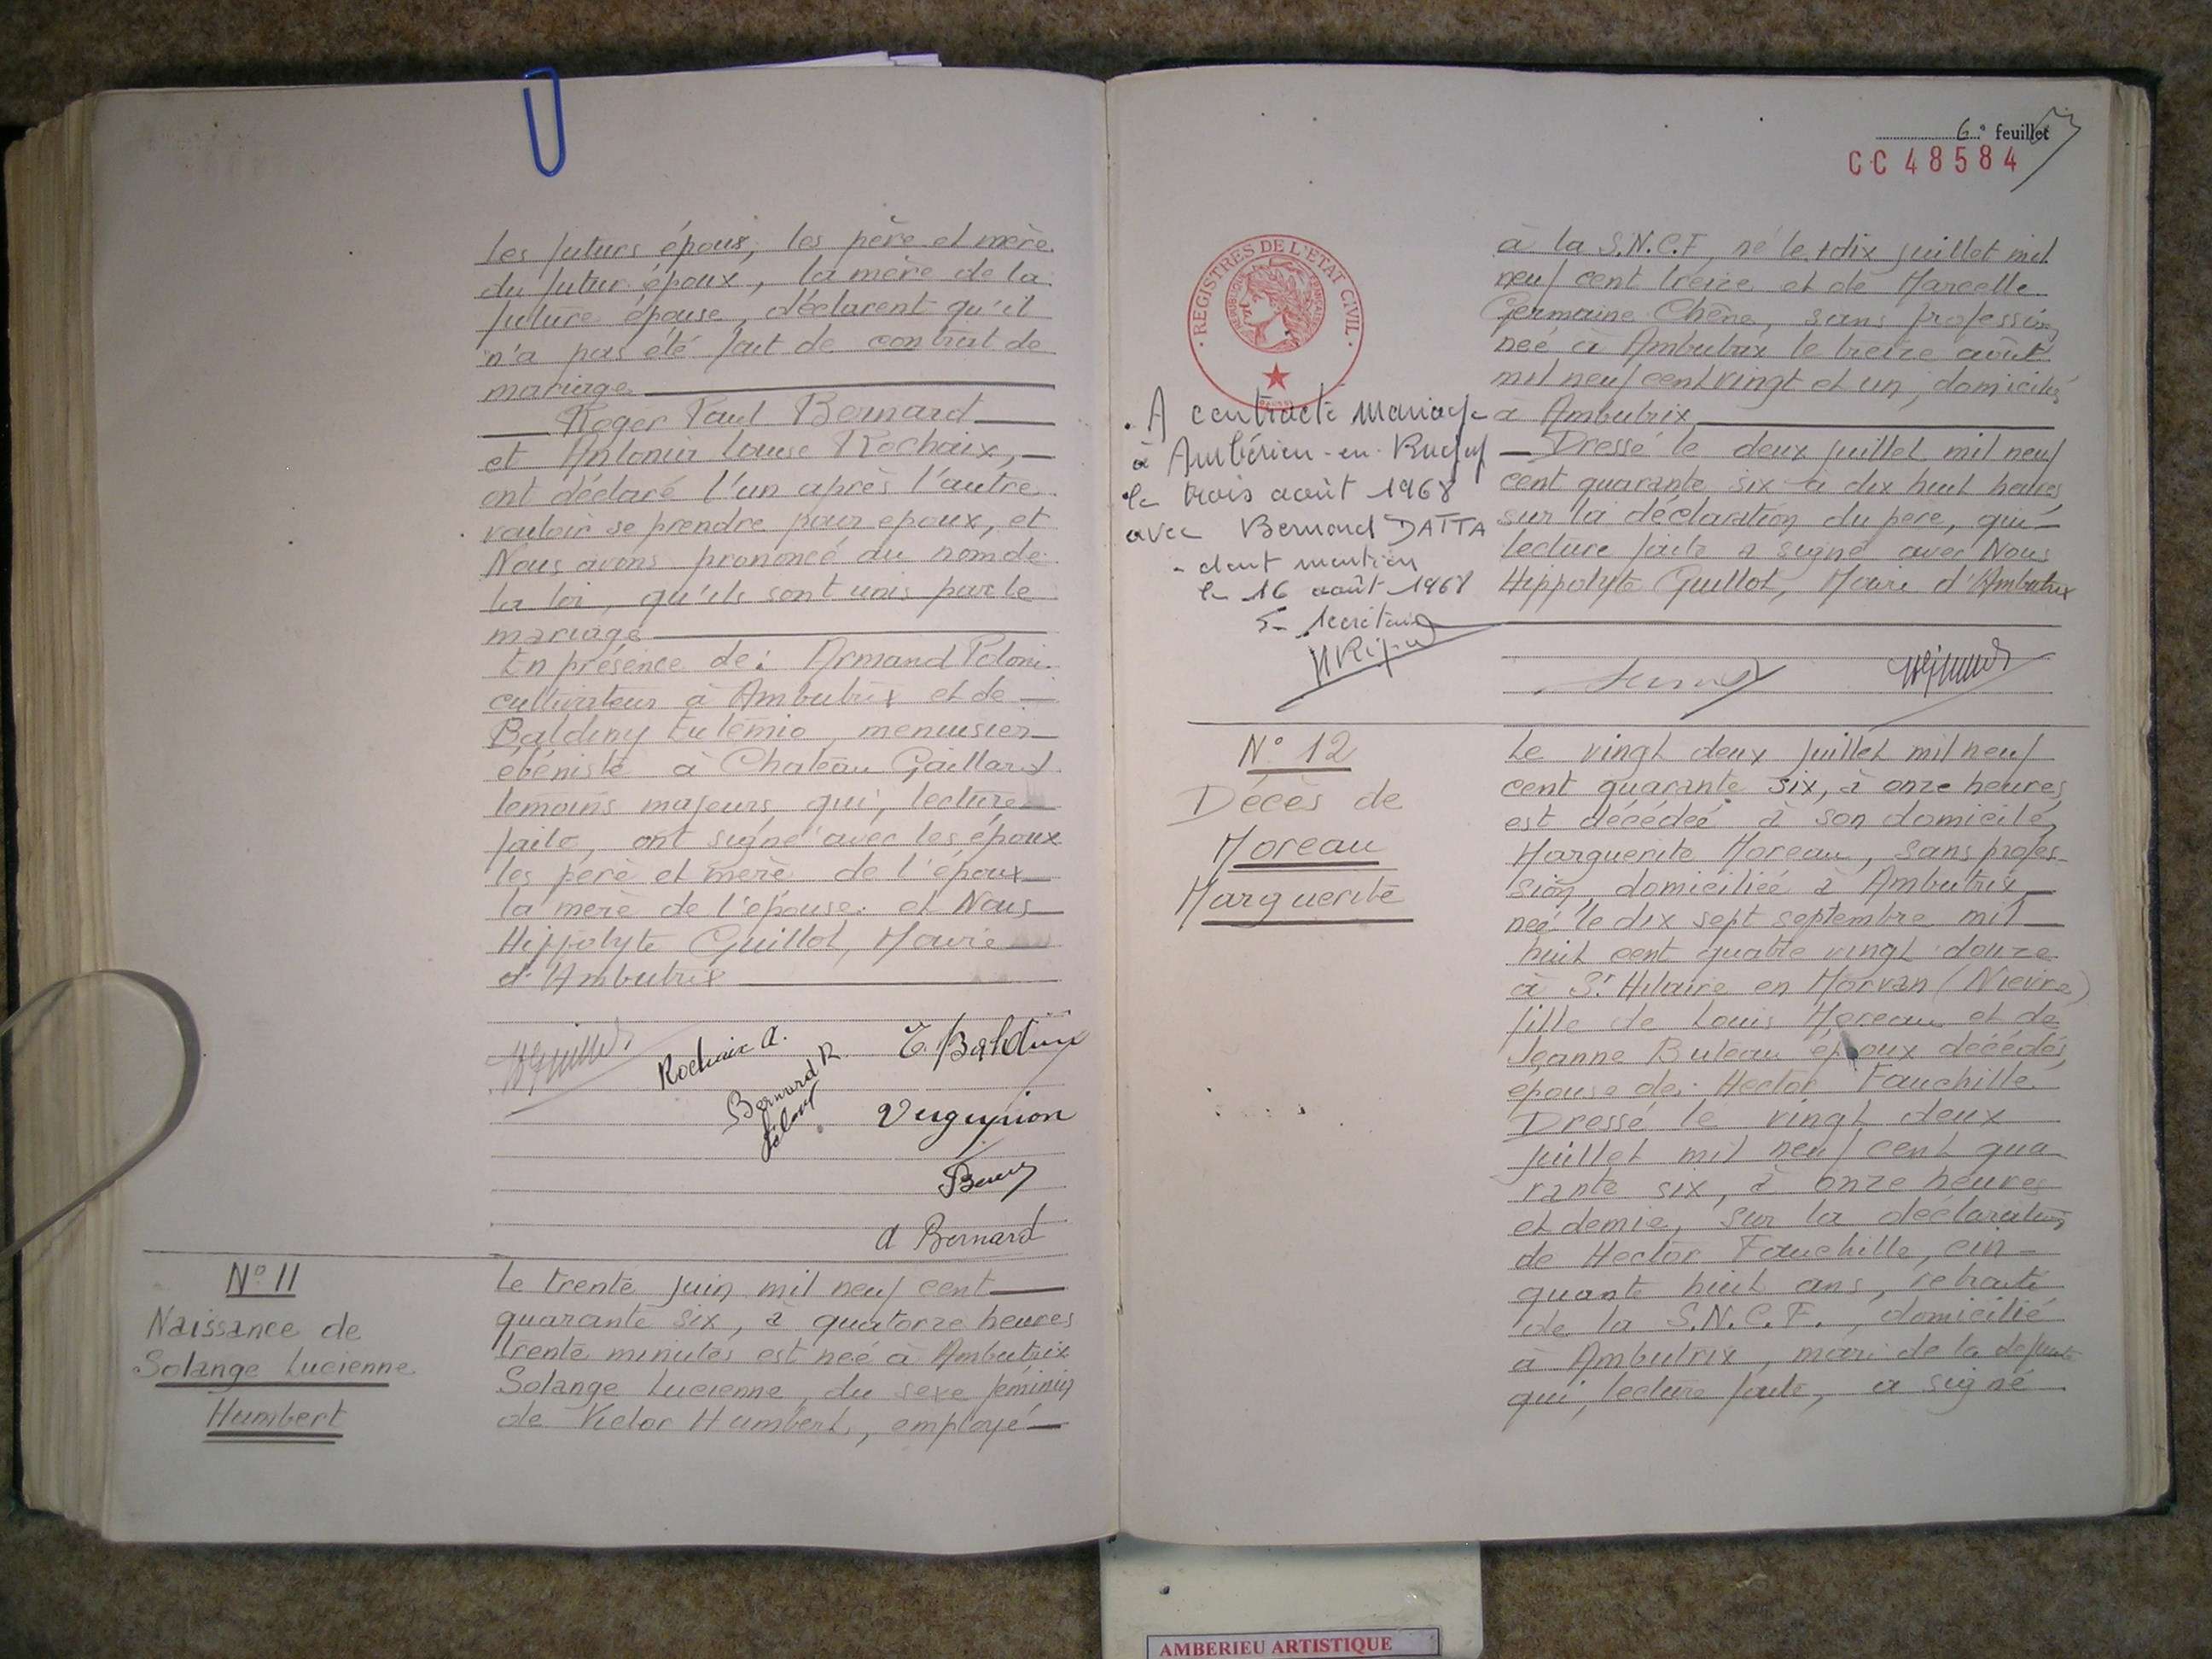 les futurs époux, les père et mère
du futur époux, la mère de la
future épouse, déclarent qu'il
n'a pas été fait de contrat de
mariage
Roger Paul Bernard
et Antonia Louise Rochaix,
ont déclaré l'un après l'autre
vouloir se prendre pour epoux, et
Nous avons prononcé au nom de
la loi, qu'ils sont unis par le
mariage
En présence de: Armand Poloni
cultivateur à Ambutrix et de
Baldiny Eutémio, menuisier
ébéniste à Chateau Gaillard
temoins majeurs, qui, lecture
faite, ont signé avec les époux
les père et mère de l'époux
la mère de l'épouse. et Nous
Hippolyte Guillot, Maire
d'Ambutrix
Rochaix A.
E. Baldini
Bernard R.
A Bernard
N° 11
Naissance de
Solange Lucienne
Humbert
Le trente juin mil neuf cent
quarante six, à quatorze heures
trente minutes est née à Ambutrix
Solange Lucienne, du sexe féminin
de Victor Humbert, employé
6e feuillet
CC 48584
REGISTRES DE L'ETAT CIVIL
à la S.N.C.F, né le dix juillet mil
neuf cent treize et de Marcelle
Germaine Chêne, sans profession
née à Ambutrix le treize août
mil neuf cent vingt et un, domiciliés
à Ambutrix
Dressé le deux juillet mil neuf
cent quarante six à dix huit heures
sur la déclaration du père, qui
lecture faite a signé avec Nous
Hippolyte Guillot, Maire d'Ambutrix
A contracté mariage
à Ambérieu-en-Bugey
le trois août 1968
avec Bernard DATTA
- dont mention
le 16 août 1968
secrétaire
N° 12
Décès de
Moreau
Marguerite
Le vingt deux juillet mil neuf
cent quarante six, à onze heures
est décédée à son domicile,
Marguerite Moreau, sans profes-
sion, domiciliée à Ambutrix
née le dix sept septembre mil
huit cent quatre vingt douze
à St Hilaire en Morvan (Nievre)
fille de Louis Moreau et de
Jeanne Buteau époux décédés,
epouse de: Hector Fauchille.
Dressé le vingt deux
juillet mil neuf cent qua
rante six, à onze heures
et demie, sur la déclaration
de Hector Fauchille, cin-
quante huit ans, retraité
de la S.N.C.F., domicilié
à Ambutrix, mari de la defunte
qui, lecture faite, a signé
AMBERIEU ARTISTIQUE